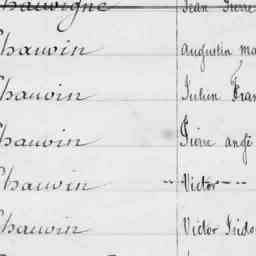 Chauvigné Jean Pierre
Chauvin Augustin
Chauvin Julien
Chauvin Pierre ange
Chauvin Victor
Chauvin Victor Isido